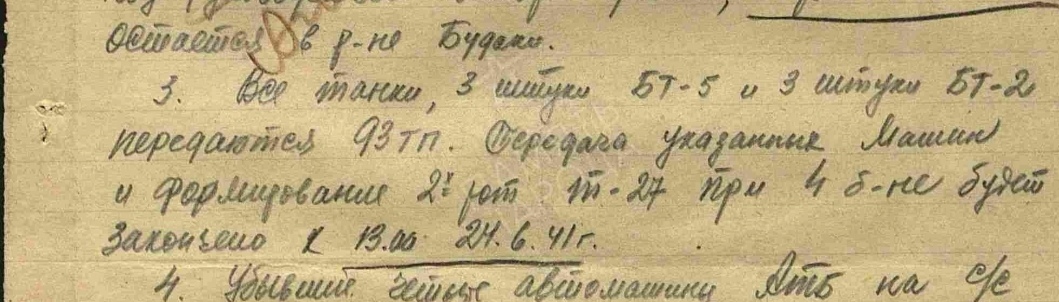 остается в р-не Будски.
3. Все танки, 3 штуки БТ-5 и 3 штуки БТ-2
передаются 93 тп. Передача указанных машин
и формирование 2х рот Т-27 при 4 б-не будет
закончено к 13.00 24.6.41г.
4. Убывшие четыре автомашины Атб на с/с